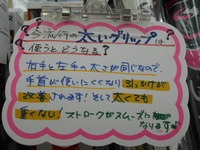 今流行の太いグリップは
使うとどうなる?
右手と左手の太さが同じなので、
手首が使いにくくなり引っかけが
改善されます!そして太くても
重くない ストロークがスムーズに
なります